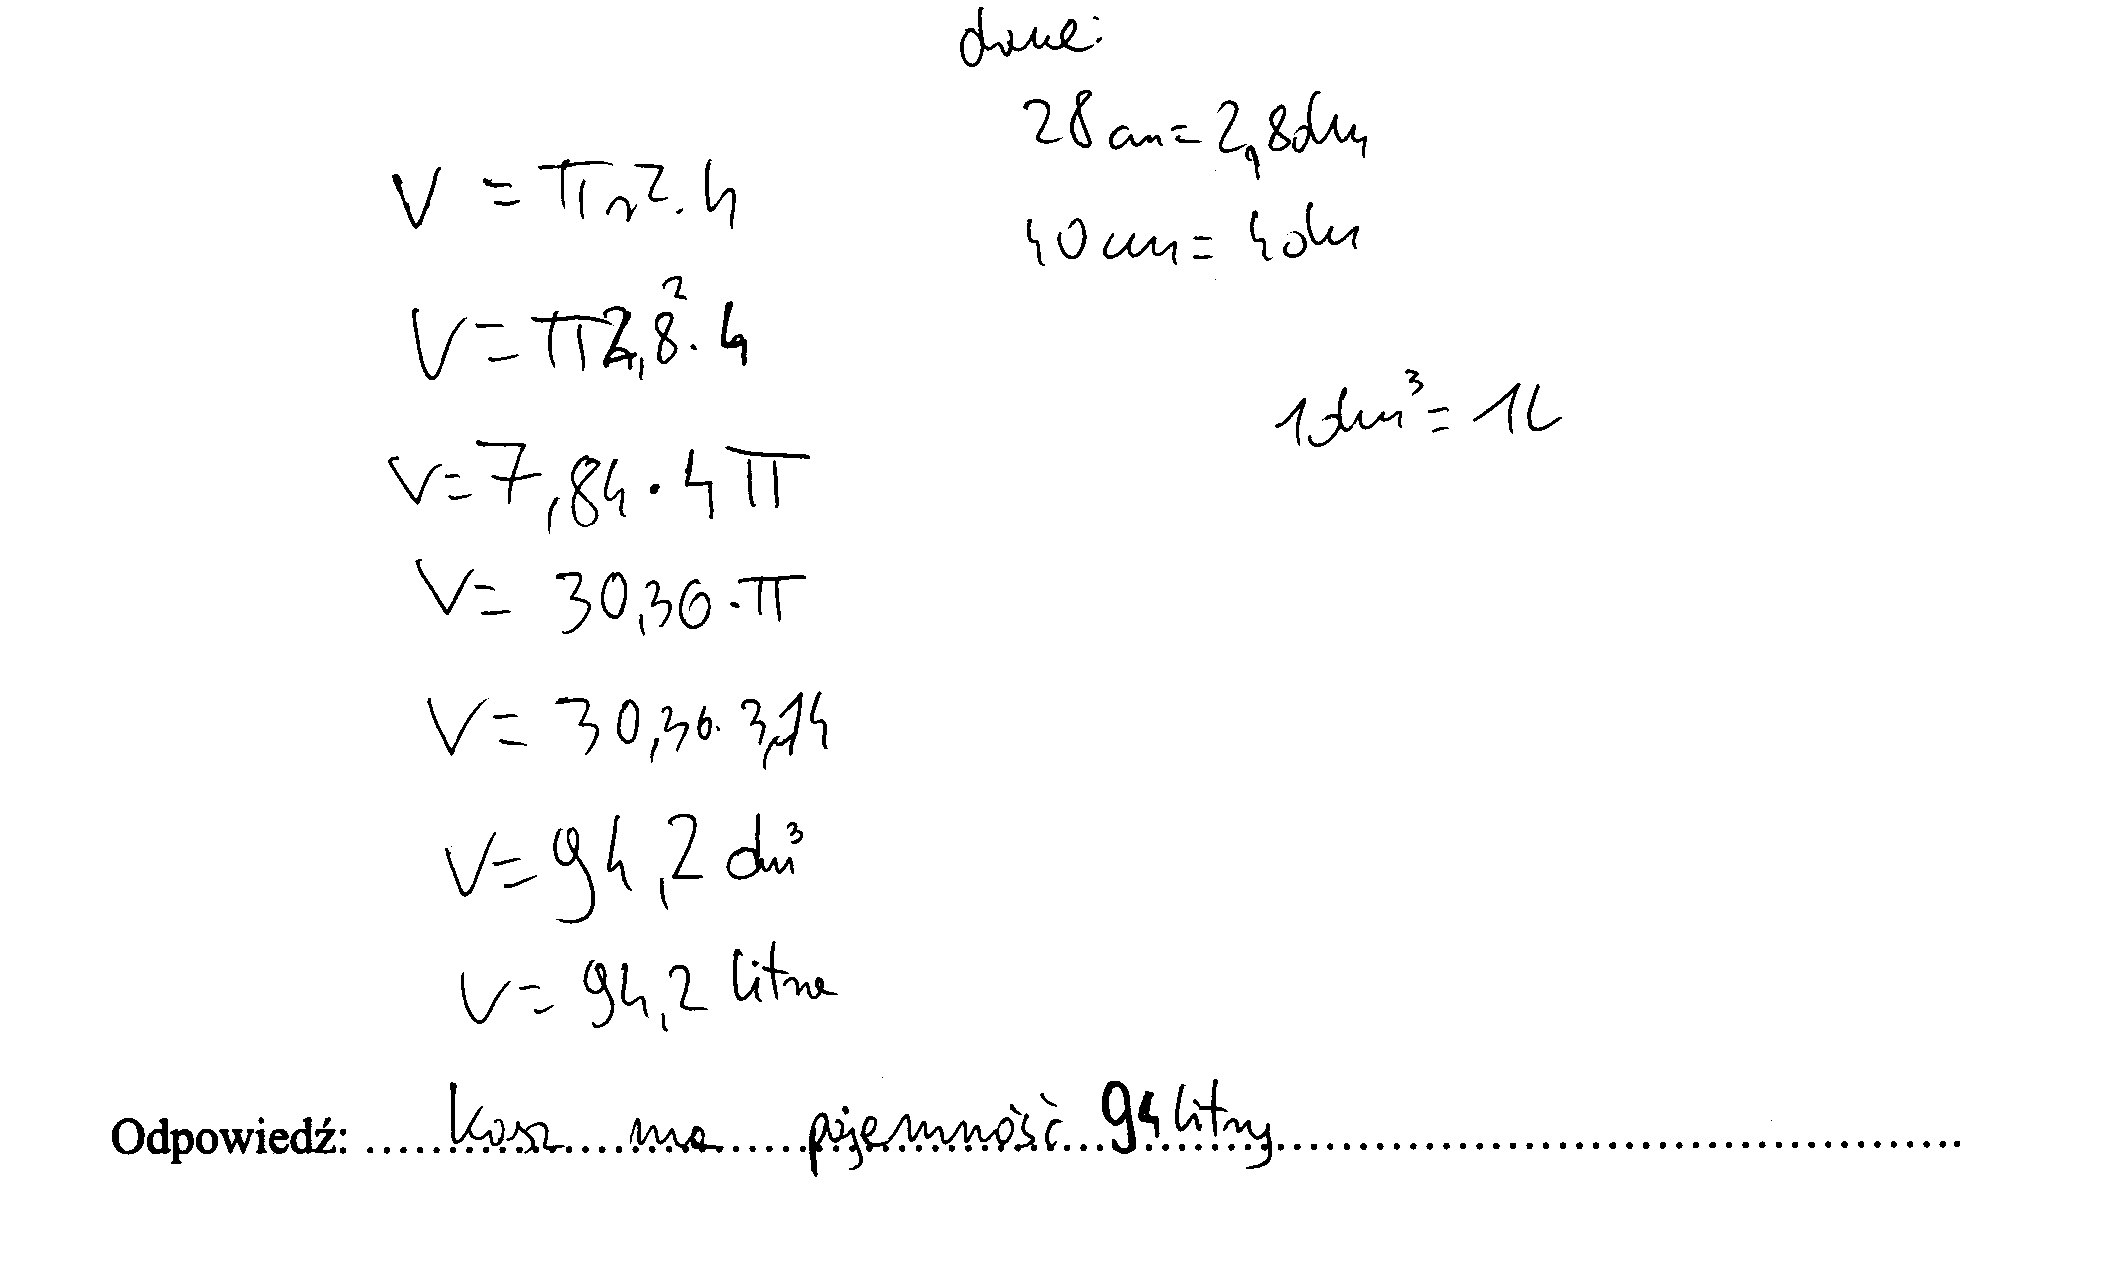 dane:
28 cm = 2,8 dm
40 cm = 4 dm
V = πr². h
V = π2,8². 4
1 dm³ = 1L
V = 7,84 · 4 π
V = 30,36 · π
V = 30,36. 3,14
V = 94,2 dm³
V = 94,2 litra
Odpowiedź: Kosz ma pojemność 94 litry